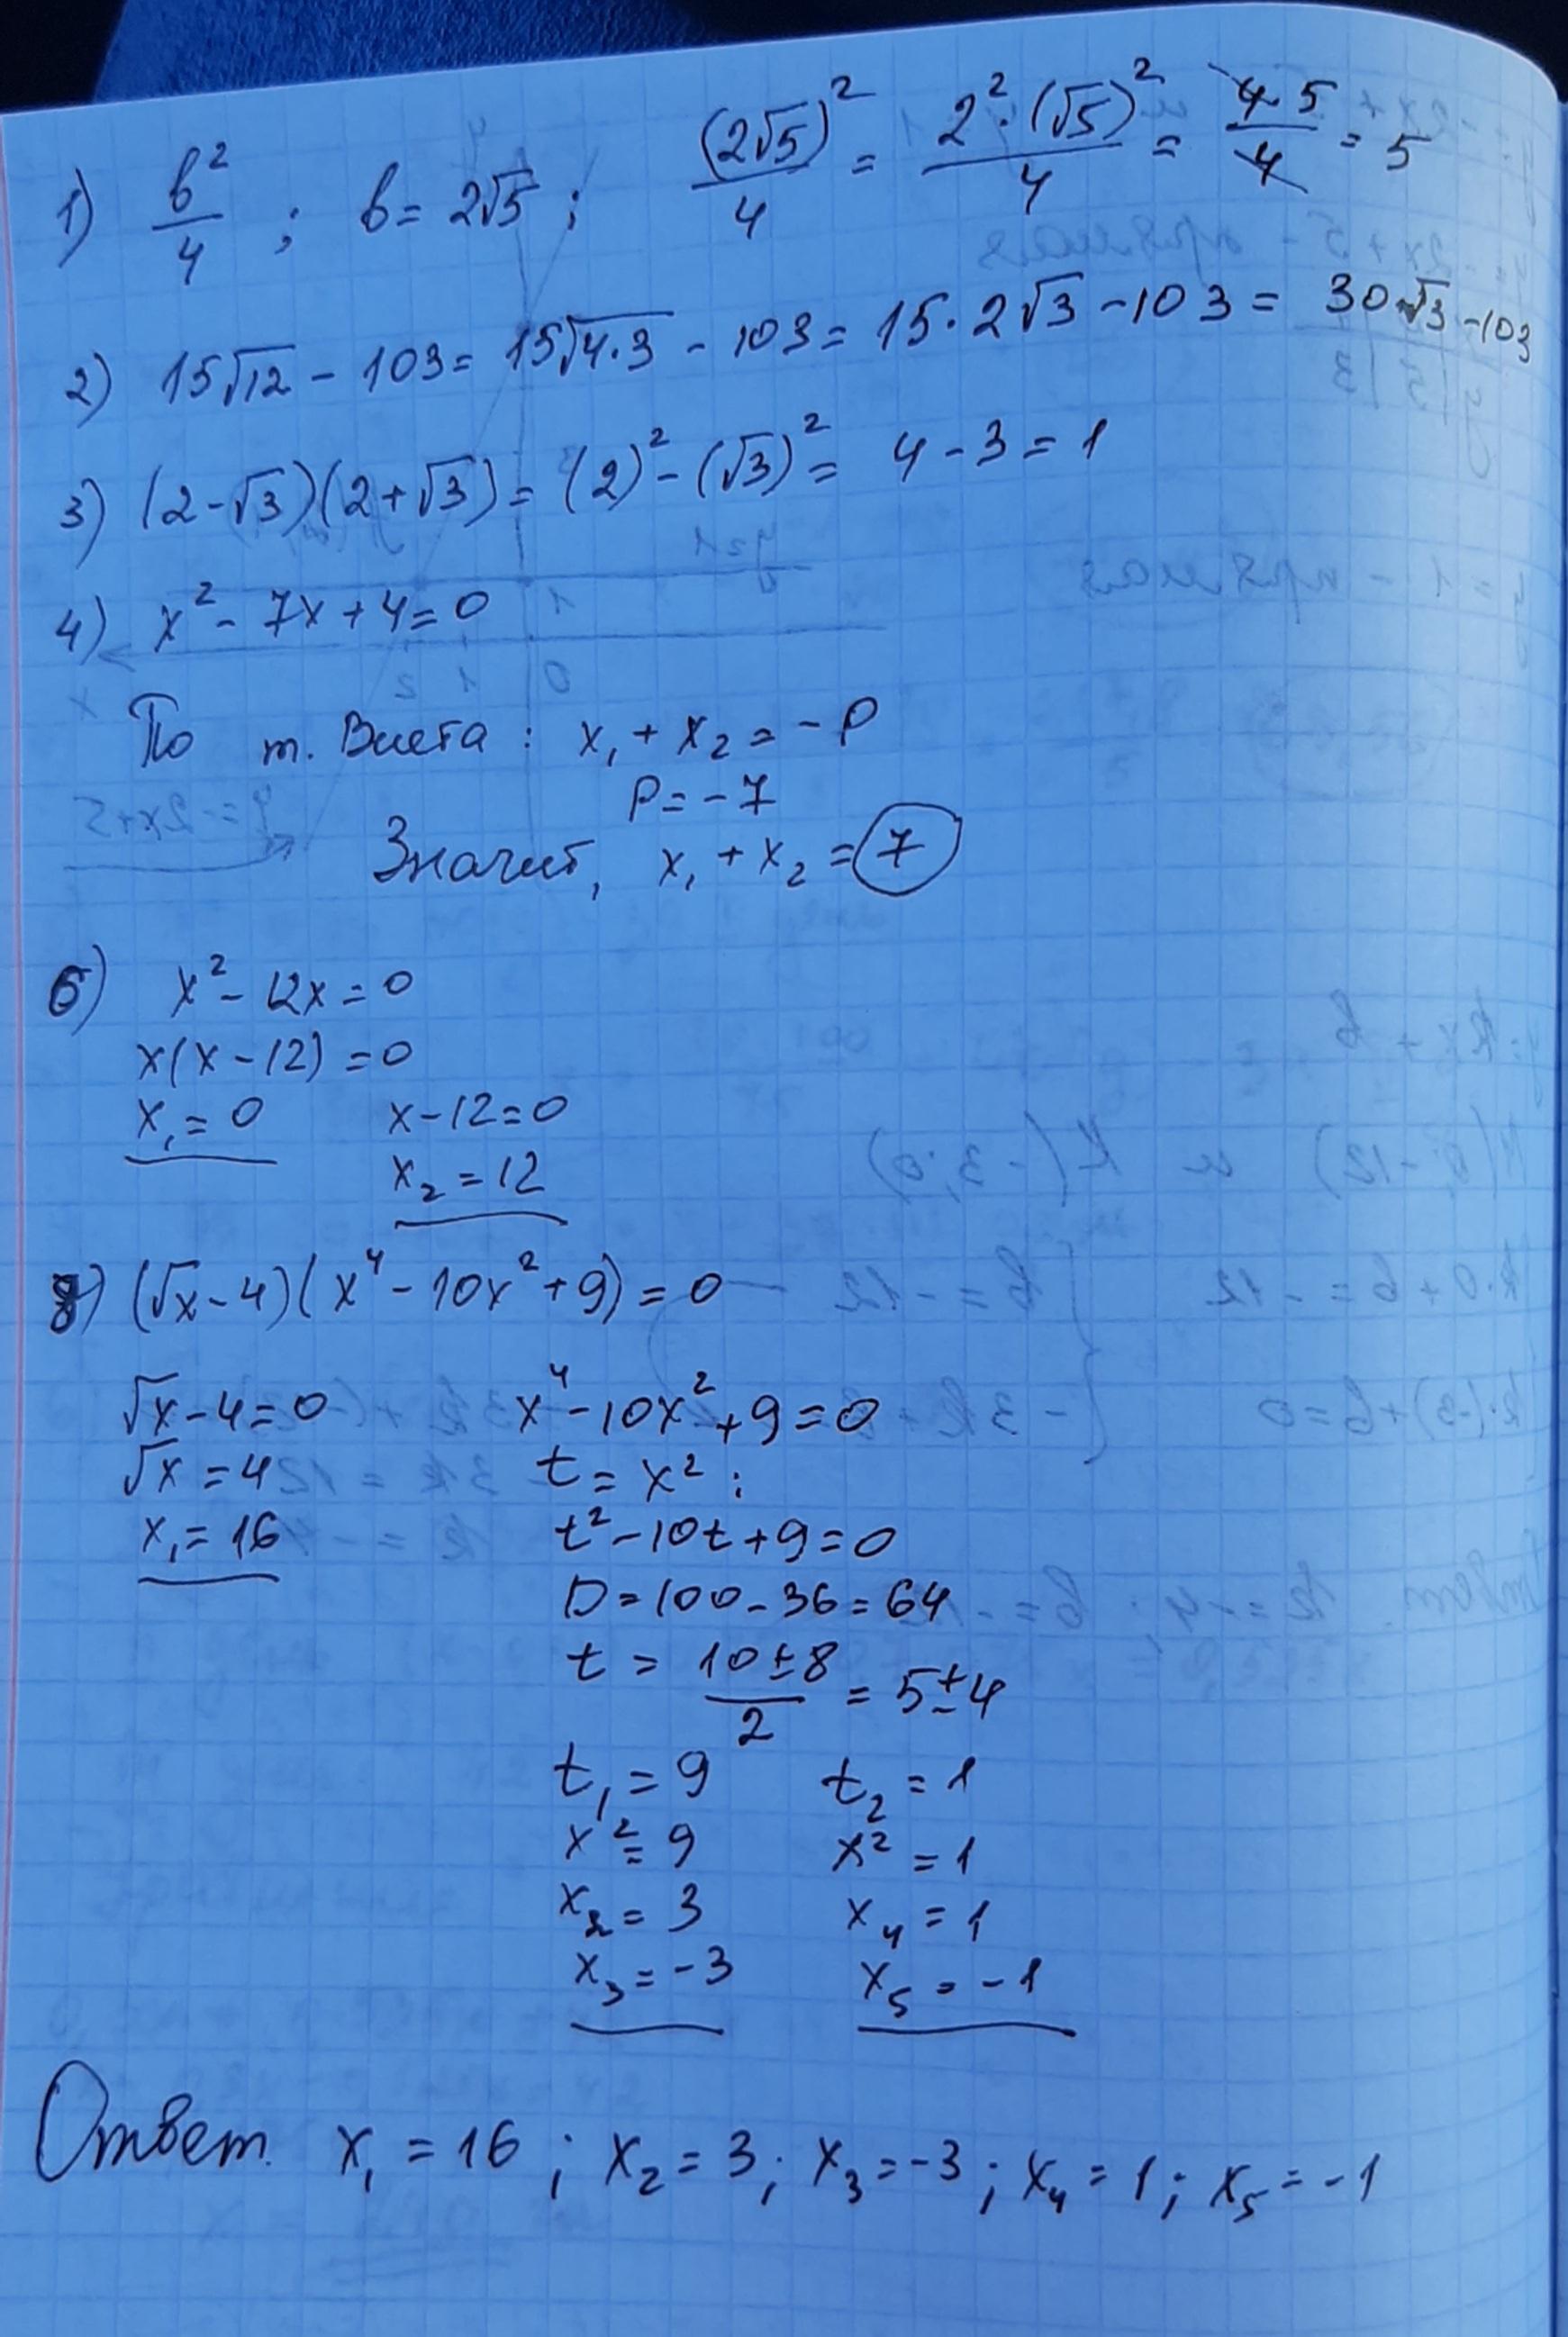 1) b²/4 ; b = 2√5 ; (2√5)²/4 = 2²·(√5)²/4 = 4·5/4 = 5
2) 15√12 - 103 = 15√4·3 - 103 = 15·2√3 - 103 = 30√3 - 103
3) (2-√3)(2+√3) = (2)² - (√3)² = 4 - 3 = 1
4) x² - 7x + 4 = 0
По т. Виета : x₁ + x₂ = - p
p = - 7
Значит, x₁ + x₂ = 7
6) x² - 12x = 0
x(x - 12) = 0
x₁ = 0 x - 12 = 0
x₂ = 12
8) (√x - 4)(x⁴ - 10x² + 9) = 0
√x - 4 = 0 x⁴ - 10x² + 9 = 0
√x = 4 t = x² :
x₁ = 16 t² - 10t + 9 = 0
D = 100 - 36 = 64
t = 10±8/2 = 5±4
t₁ = 9 t₂ = 1
x² = 9 x² = 1
x₂ = 3 x₄ = 1
x₃ = - 3 x₅ = - 1
Ответ. x₁ = 16 ; x₂ = 3 ; x₃ = -3 ; x₄ = 1 ; x₅ = - 1